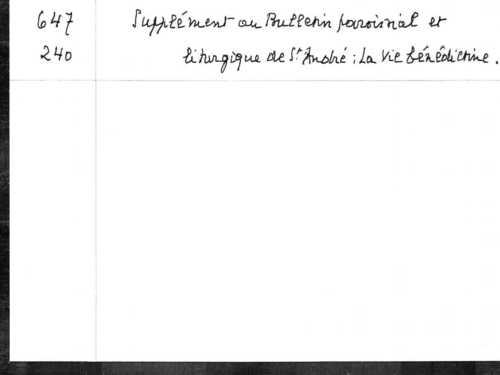 647 Supplément au Bulletin paroissial et
240 liturgique de St André ; La Vie bénédictine.